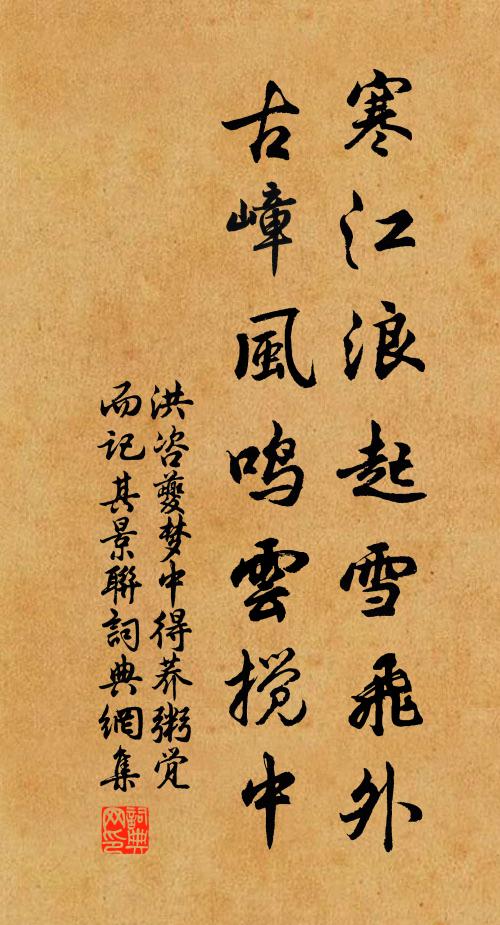 寒江浪起雪飛外
古嶂風鸣雲搅中
洪咨夔梦中得荞粥觉
而记其景聯詞典網集
詞典网印